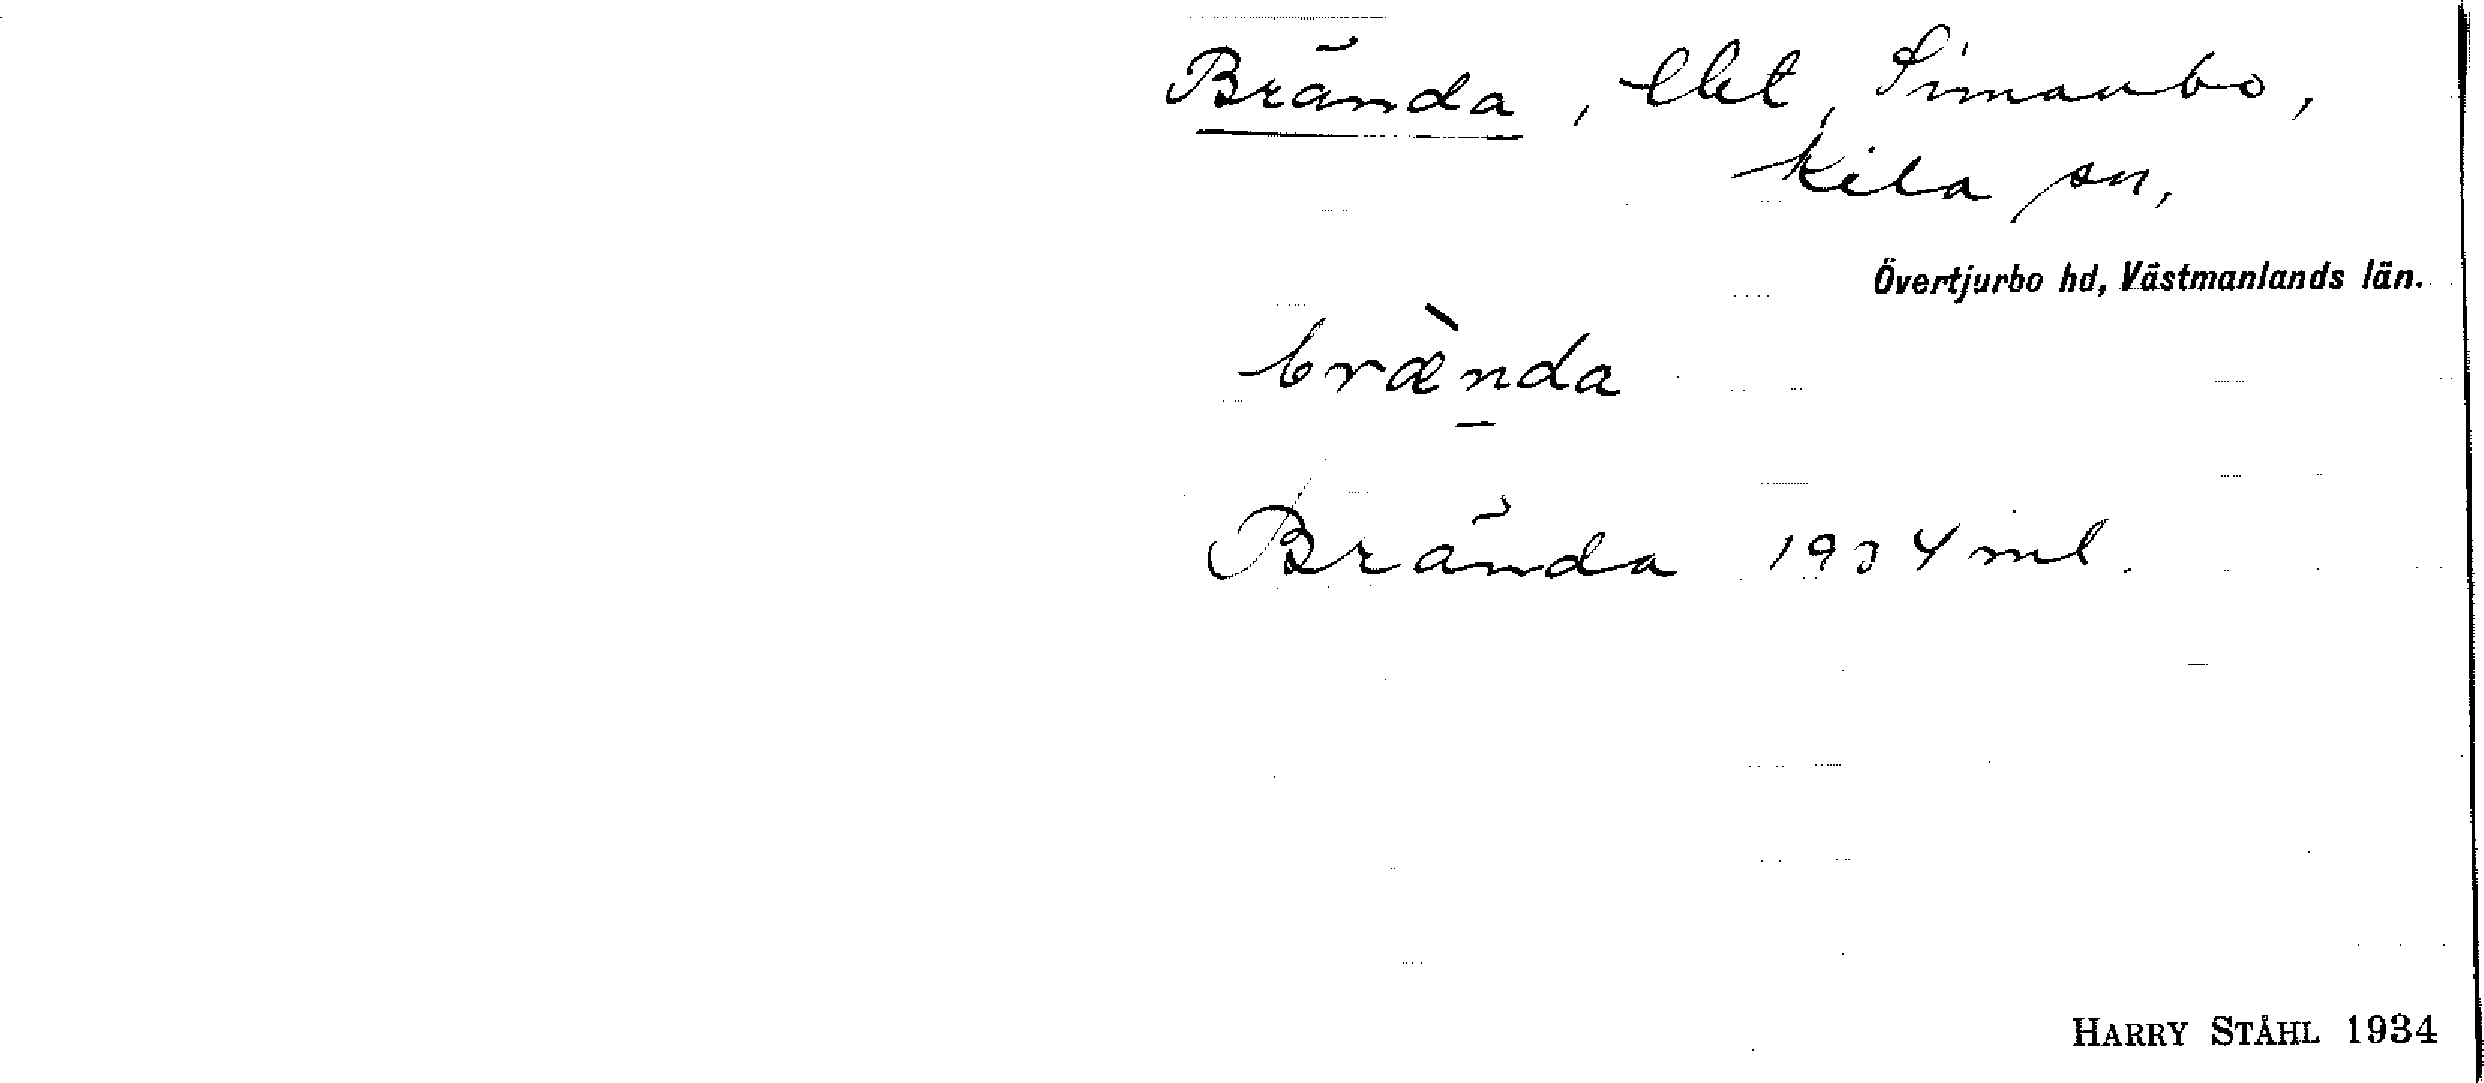 Brända, lht, Simanbo,
Kila sn,
Övertjurbo hd, Västmanlands län.
bræ̀nda
Brända 1934 ml.
HARRY STÅHL 1934